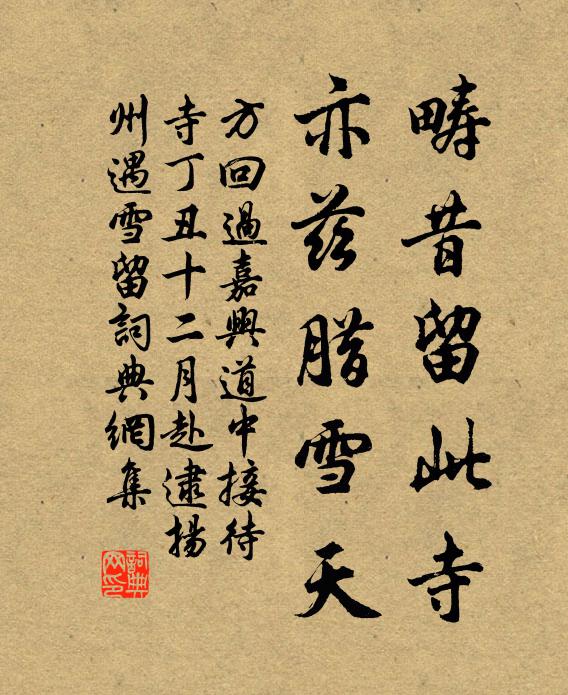 疇昔留此寺
亦茲腊雪天
方回過嘉興道中接待
寺丁丑十二月赴逮揚
州遇雪留詞典網集
詞典
网印